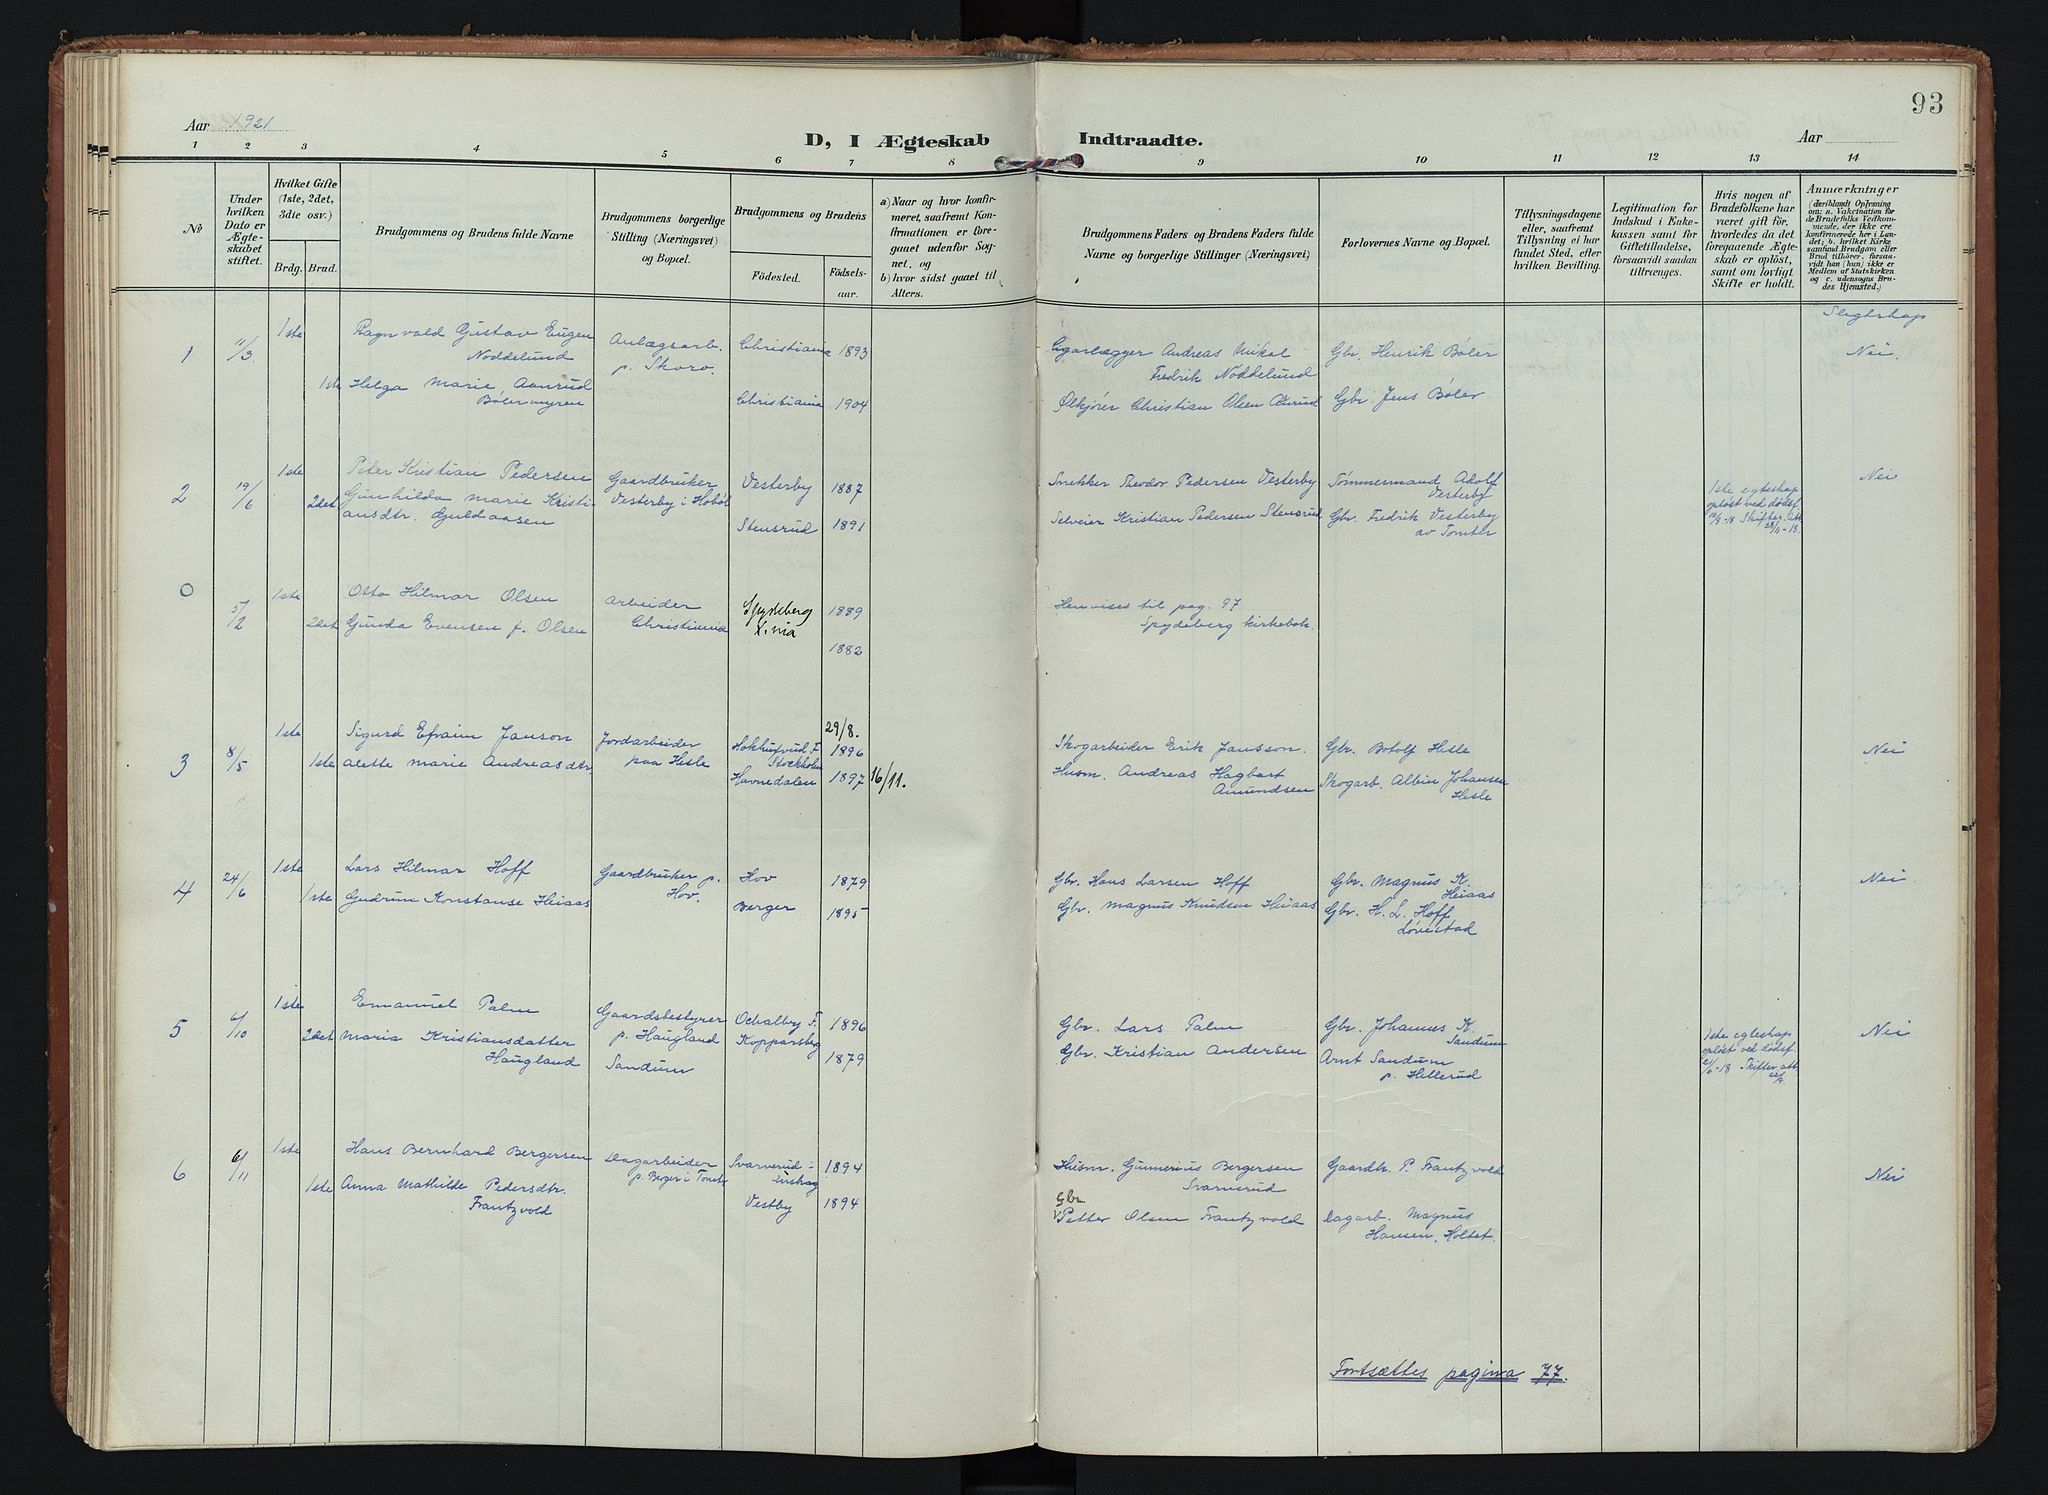 93
Aar 1921
D, I Ægteskab Indtraadte.
Aar
1 2 3 4 5 6 7 8 9 10 11 12 13 14
No
Under hvilken Dato er Ægteskabet stiftet.
Hvilket Gifte (1ste, 2det, 3die osv.)
Brdg. Brud.
Brudgommens og Brudens fulde Navne
Brudgommens borgerlige Stilling (Næringsvei) og Bopæl.
Brudgommens og Brudens
Födested. Födselsaar.
a) Naar og hvor konfirmeret, saafremt Konfirmationen er foregaaet udenfor Sognet, og
b) hvor sidst gaaet til Alters.
Brudgommens Faders og Brudens Faders fulde Navne og borgerlige Stillinger (Næringsvei)
Forlovernes Navne og Bopæl.
Tillysningsdagene eller, saafremt Tillysning ei har fundet Sted, efter hvilken Bevilling.
Legitimation for Indskud i Enkekassen samt for Giftetilladelse, forsaavidt saadan tiltrænges.
Hvis nogen af Brudefolkene har været gift för, hvorledes da det foregaaende Ægteskab er oplöst, samt om lovligt Skifte er holdt.
Anmærkninger
(deriblandt Oplysning om: a. Vaccination for de Brudefolks Vedkommende, der ikke ere konfirmerede her i Landet; b. hvilket Kirkesamfund Brudgom eller Brud tilhörer, forsaavidt han (hun) ikke er Medlem af Statskirken og c. udensogns Brudes Hjemsted.)
Slegtskap
1 11/3 1ste Ragnvald Gustav Eugen Noddelund Anlægsarb. p. Skoro. Christiania 1893 Andreas Mikal Fredrik Noddelund Gbr. Henrik Bøler Nei.
1ste Helga Marie Aanrud Bølermyren Christiania 1904 Ølkjører Christian Olsen Gbr. Jens Bøler
2 19/6 1ste Peter Kristian Pedersen Gaardbruker Vesterby i Hobøl Vesterby 1887 Snekker Teodor Pedersen Vesterby Tømmermand Adolf Vesterby Nei
2det Gunhilda Marie Kristiansdtr. Guldaasen Stensrud 1891 Selveier Kristian Pedersen Stensrud Gbr. Fredrik Vesterby av Tomter 1ste egteskap opløst ved dødsf.
0 5/2 1ste Otto Hilmar Olsen Arbeider Christiania Spydeberg 1889 Henvises til pag. 97 Spydeberg kirkebok.
2det Gunda Evensen f. Olsen X.nia 1882
3 8/5 1ste Sigurd Efraim Janson Jordarbeider paa Hesle Stockholm 29/8. 1896 Skogarbeider Erik Jansson. Gbr. Botolf Hesle Nei
1ste Alette Marie Andreasdtr Havnedalen 1897 16/11. Husm. Andreas Hagbart Amundsen Skogarb. Albin Johansen Hesle
4 24/6 1ste Lars Hilmar Hoff Gaardbruker p. Hov. Hov 1879 Gbr. Hans Larsen Hoff Gbr. Magnus K. Heiaas Nei.
1ste Gudrun Konstanse Heiaas Berger 1895 Gbr. Magnus Knudsen Heiaas Gbr. H. L. Hoff, Løvestad
5 6/10 1ste Emanuel Palm Gaardsbestyrer p. Haugland Kopparsberg 1896 Gbr. Lars Palm Gbr. Johannes K. Sandum Nei
2det Maria Kristiansdatter Haugland Sandum 1879 Gbr. Kristian Andersen Arnt Sandum p. Hillerud 1ste egteskap opløst ved dødsf.
6 6/11 1ste Hans Bernhard Bergersen Dagarbeider p. Berger i Tomter Svarverud 1894 Husm. Gunnerius Bergersen Svarverud Gaardbr. P. Frantzvold Nei
1ste Anna Mathilde Pedersdtr. Frantzvold Vestby 1894 Gbr Petter Olsen Frantzvold Dagarb. Magnus Hansen, Holtet.
Fortsættes pagina 77.